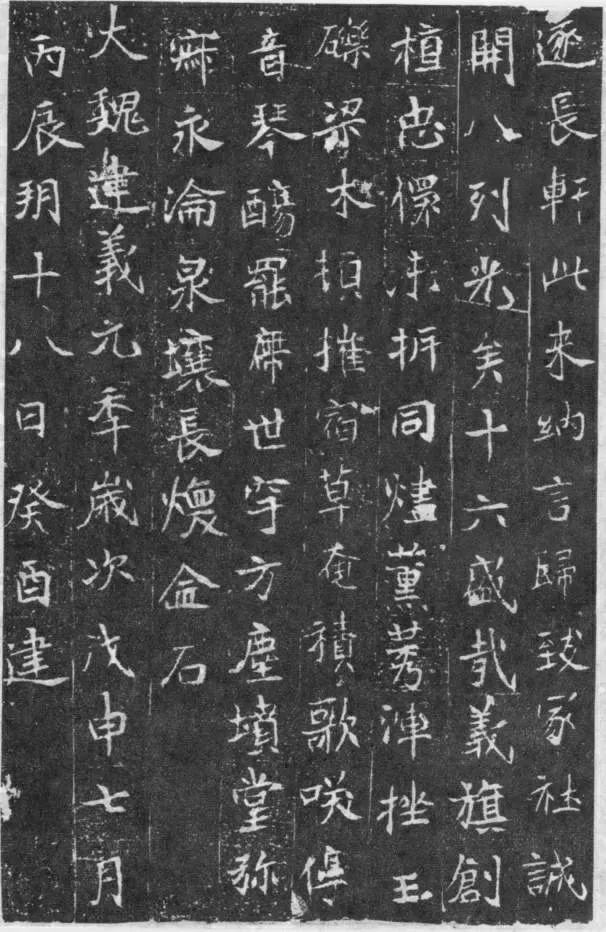 遂長軒此来納言歸致冢社誠
開八列光矣十六盛㢤義旗創
植忠傑未折同燼薰莠渾挫玉
礫梁木損摧宿草奄積歌咲停
音琴醻罷席世穸方塵墳堂弥
寐永淪泉壤長煥金石
大魏建義元秊歳次戊申七月
丙辰玥十八日癸酉建